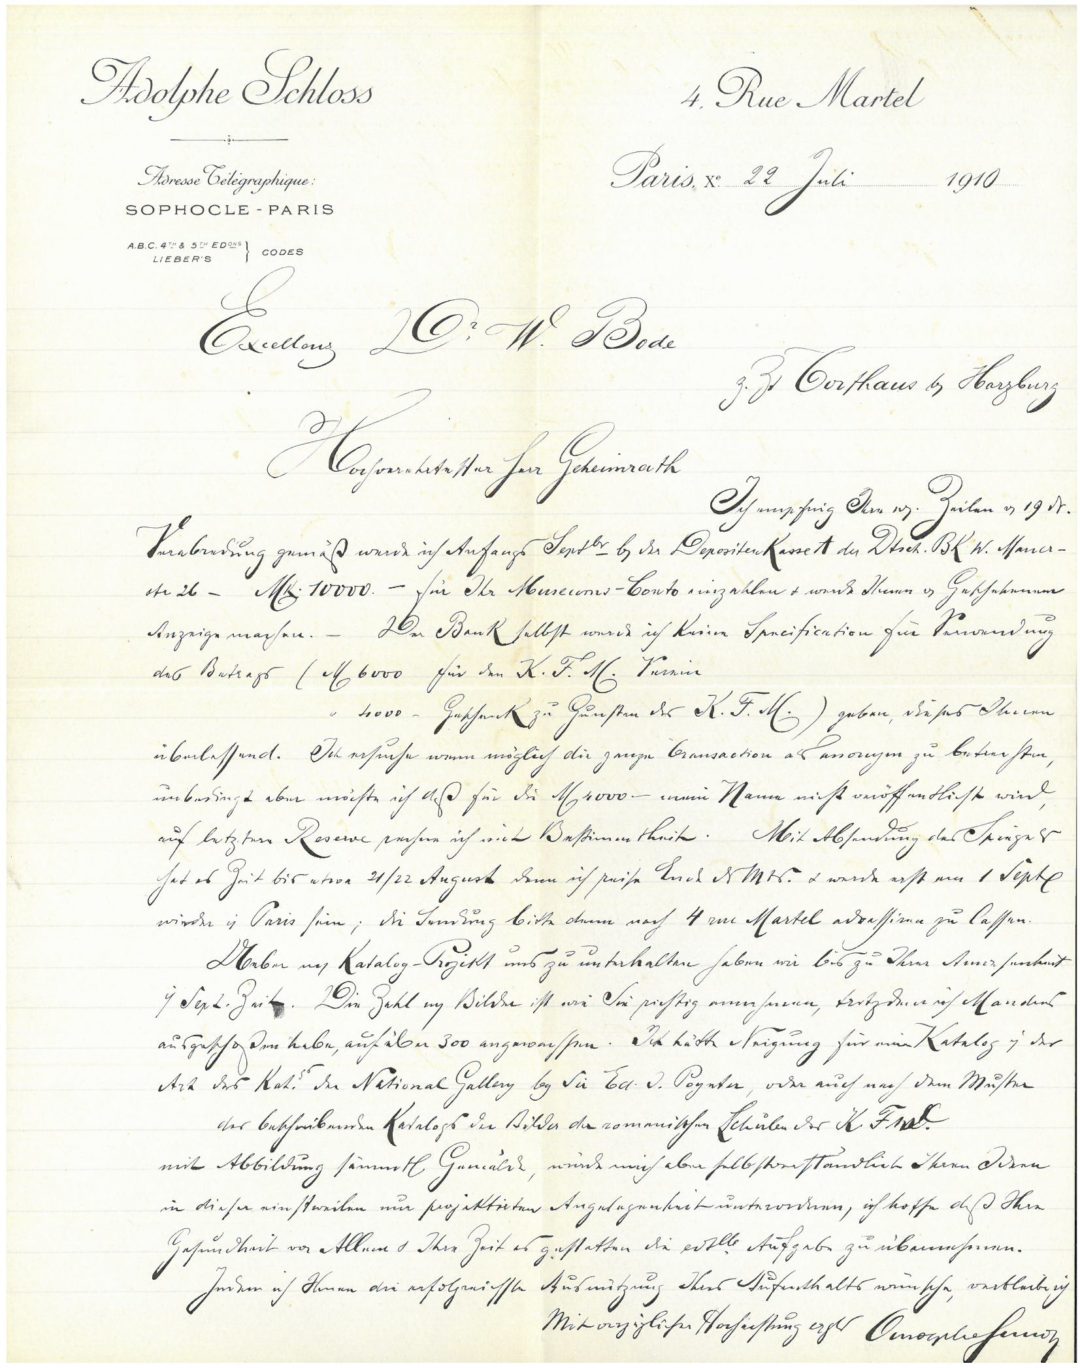 Adolphe Schloss
4, Rue Martel
Adresse Télégraphique:
SOPHOCLE - PARIS
A.B.C. 4TH & 5TH EDONS
LIEBER'S } CODES
Paris, Xe 22 Juli 1910
Excellenz Dr. W. Bode
z. Zt Torfhaus b/ Harzburg
Hochverehrtester Herr Geheimrath
Ich empfing Ihre Zeilen v 19 ds.
Verabredung gemäß werde ich Anfangs Septbr b/ der Depositenkasse A der Dtsch. Bk W. Mauer-
str 26 – Mk. 10000. – für Ihr Museums-Conto einzahlen & werde Ihnen v Geschehenem
Anzeige machen. – Der Bank selbst werde ich keine Specification für Verwendung
des Betrags ( M 6000 für den K. F. M. Verein
" 4000 – Geschenk zu Gunsten des K. F. M. ) geben, dieses Ihnen
überlassend. Ich ersuche wenn möglich die ganze Transaction als anonym zu betrachten,
unbedingt aber möchte ich daß für die M 4000 – mein Name nicht veröffentlicht wird,
auf letztere Reserve rechne ich mit Bestimmtheit. Mit Absendung des Spiegels
hat es Zeit bis etwa 21/22 August denn ich reise Ende ds Mts. & werde erst am 1 Sept
wieder i/ Paris sein; die Sendung bitte dann nach 4 rue Martel adressiren zu lassen.
Ueber m/ Katalog-Projekt uns zu unterhalten haben wir bis zu Ihrer Anwesenheit
i/ Sept. Zeit. Die Zahl m/ Bilder ist wie Sie richtig annehmen, trotzdem ich Manches
ausgeschoßen habe, auf über 300 angewachsen. Ich hätte Neigung für einen Katalog i/ der
Art des Kat.s der National Gallery by Sir Ed. J. Poynter, oder auch nach dem Muster
des beschreibenden Katalogs der Bilder der romanischen Schulen des K. F. M.
mit Abbildung sämmtl Gemälde, würde mich aber selbstverständlich Ihren Ideen
in dieser einstweilen nur projektirten Angelegenheit unterordnen, ich hoffe daß Ihre
Gesundheit vor Allem & Ihre Zeit es gestatten die Aufgabe zu übernehmen.
Indem ich Ihnen die erfolgreichste Ausnützung Ihres Aufenthalts wünsche, verbleibe ich
Mit vorzüglicher Hochachtung Adolphe Schloss